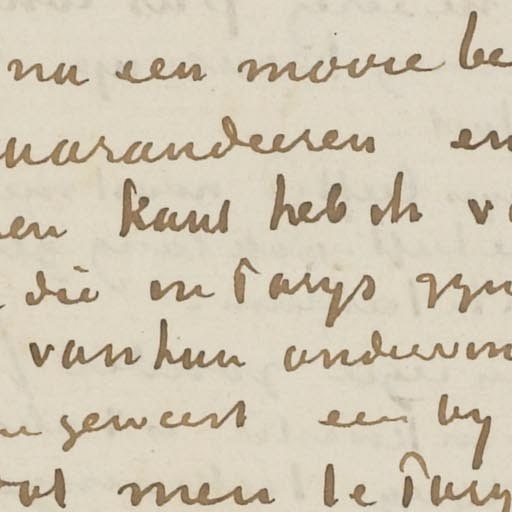 nu een mooie be
uarandeeren en
en kant heb ik v
die in Parys zyn
van hun ondervin
geweest een by
at men te Pary